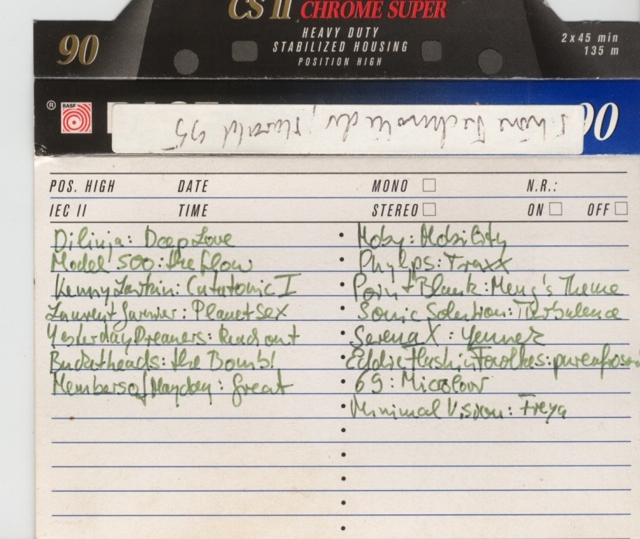 CS II CHROME SUPER
HEAVY DUTY
STABILIZED HOUSING
POSITION HIGH
90
2x45 min
135 m
® BASF
90
POS. HIGH DATE MONO N.R.:
IEC II TIME STEREO ON OFF
Dilinja: Deep Love
Model 500: the flow
Kenny Larkin: Catatonic I
Laurent Garnier: Planet Sex
Yesterday Dreamers: Reach out
Bucketheads: the Bomb!
Members of Mayday: Great
Moby: Mobility
Phylps: Traxx
Point Blank: Meng's Theme
Sonic Solution: Turbulence
Serena X:
Eddie Flashin Fowlkes:
69: Microlovr
Minimal Vision: Freya